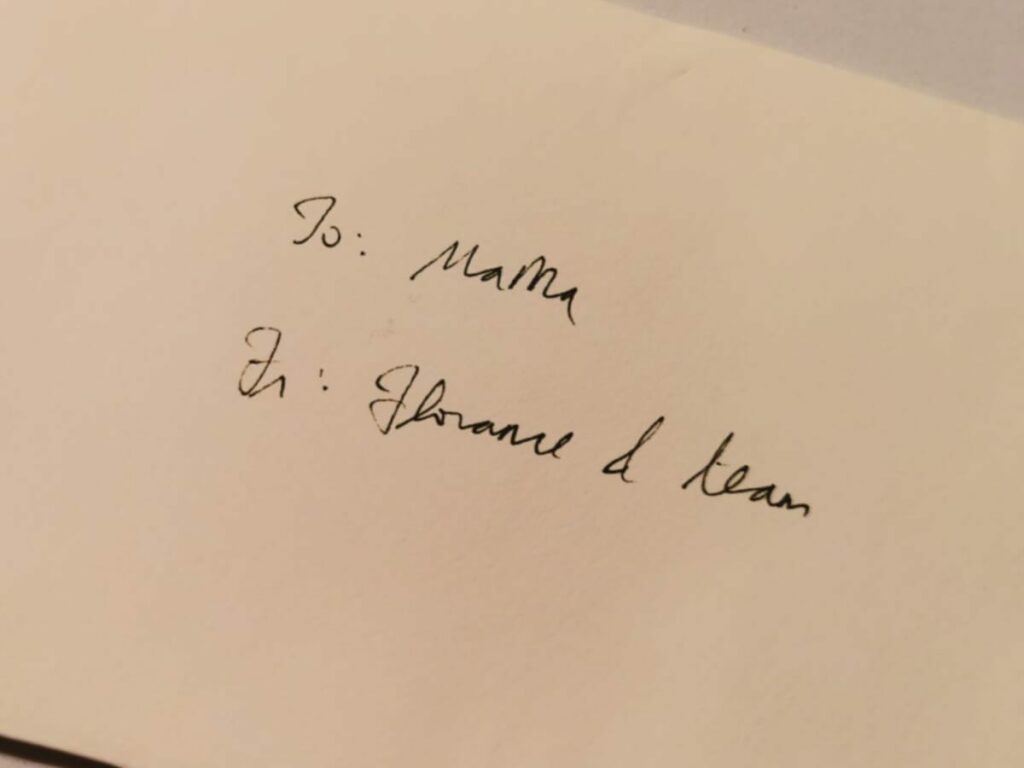 To: MaMa
Fr: Florance & team